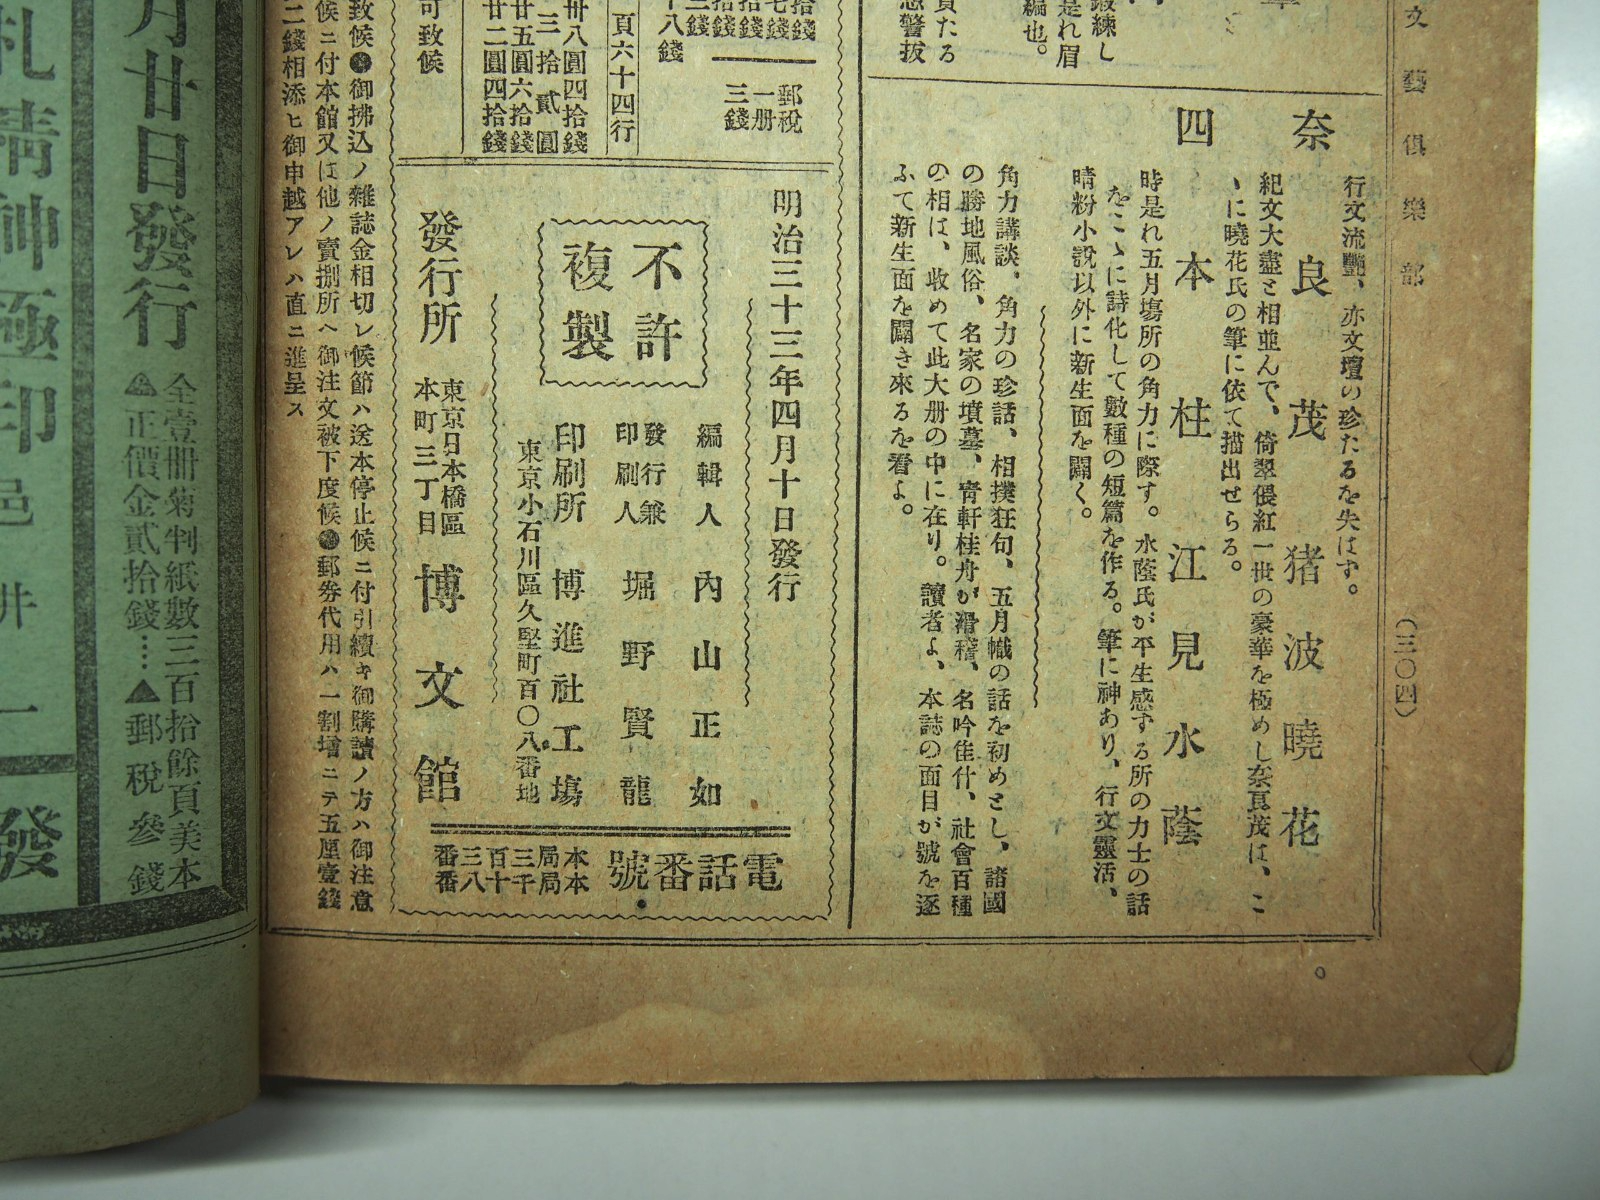 文藝俱樂部
（三〇四）
行文流艷、亦文壇の珍たるを失はず。
奈良茂 猪波曉花
紀文大盡と相並んで、倚翠偎紅一世の豪華を極めし奈良茂は、こ
ゝに曉花氏の筆に依て描出せらる。
四本柱 江見水蔭
時是れ五月塲所の角力に際す。水蔭氏が平生感ずる所の力士の話
をこゝに詩化して數種の短篇を作る。筆に神あり、行文靈活、
晴粉小説以外に新生面を闢く。
角力講談、角力の珍話、相撲狂句、五月幟の話を初めとし、諸國
の勝地風俗、名家の墳墓、靑軒桂舟が滑稽、名吟佳什、社會百種
の相は、收めて此大册の中に在り。讀者よ、本誌の面目が號を逐
ふて新生面を闢き來るを看よ。
鍛練し
是れ眉
編也。
負たる
警拔
郵稅
一册
三錢
頁六十四行
卅八圓四拾錢
三拾貳圓
廿五圓六拾錢
廿二圓四拾錢
可致候
明治三十三年四月十日發行
不許
複製
編輯人 內山正如
發行兼
印刷人 堀野賢龍
印刷所 博進社工塲
東京小石川區久堅町百〇八番地
發行所
東京日本橋區
本町三丁目
博文館
電話番號
本局三百三番
本局千十八番
致候●御拂込ノ雜誌金相切レ候節ハ送本停止候ニ付引續キ御購讀ノ方ハ御注意
候ニ付本館又は他ノ賣捌所ヘ御注文被下度候●郵劵代用ハ一割增ニテ五厘壹錢
二錢相添ヒ御申越アレハ直ニ進呈ス
月廿日發行
全壹冊菊判紙數三百拾餘頁美本
▲正價金貳拾錢…▲郵稅參錢
精神極印
發